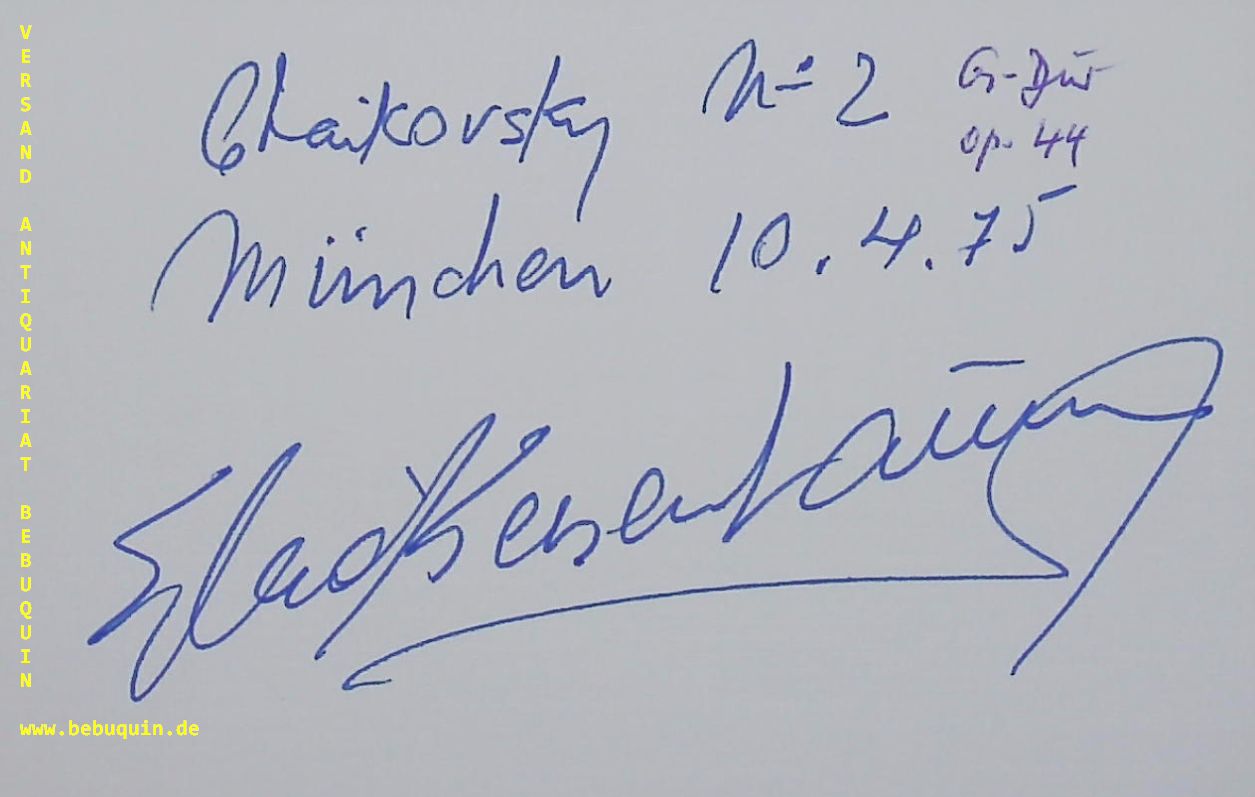 Chaikovsky Nº 2 G-Dur
op. 44
München 10.4.75
VERSAND ANTIQUARIAT BEBUQUIN
www.bebuquin.de